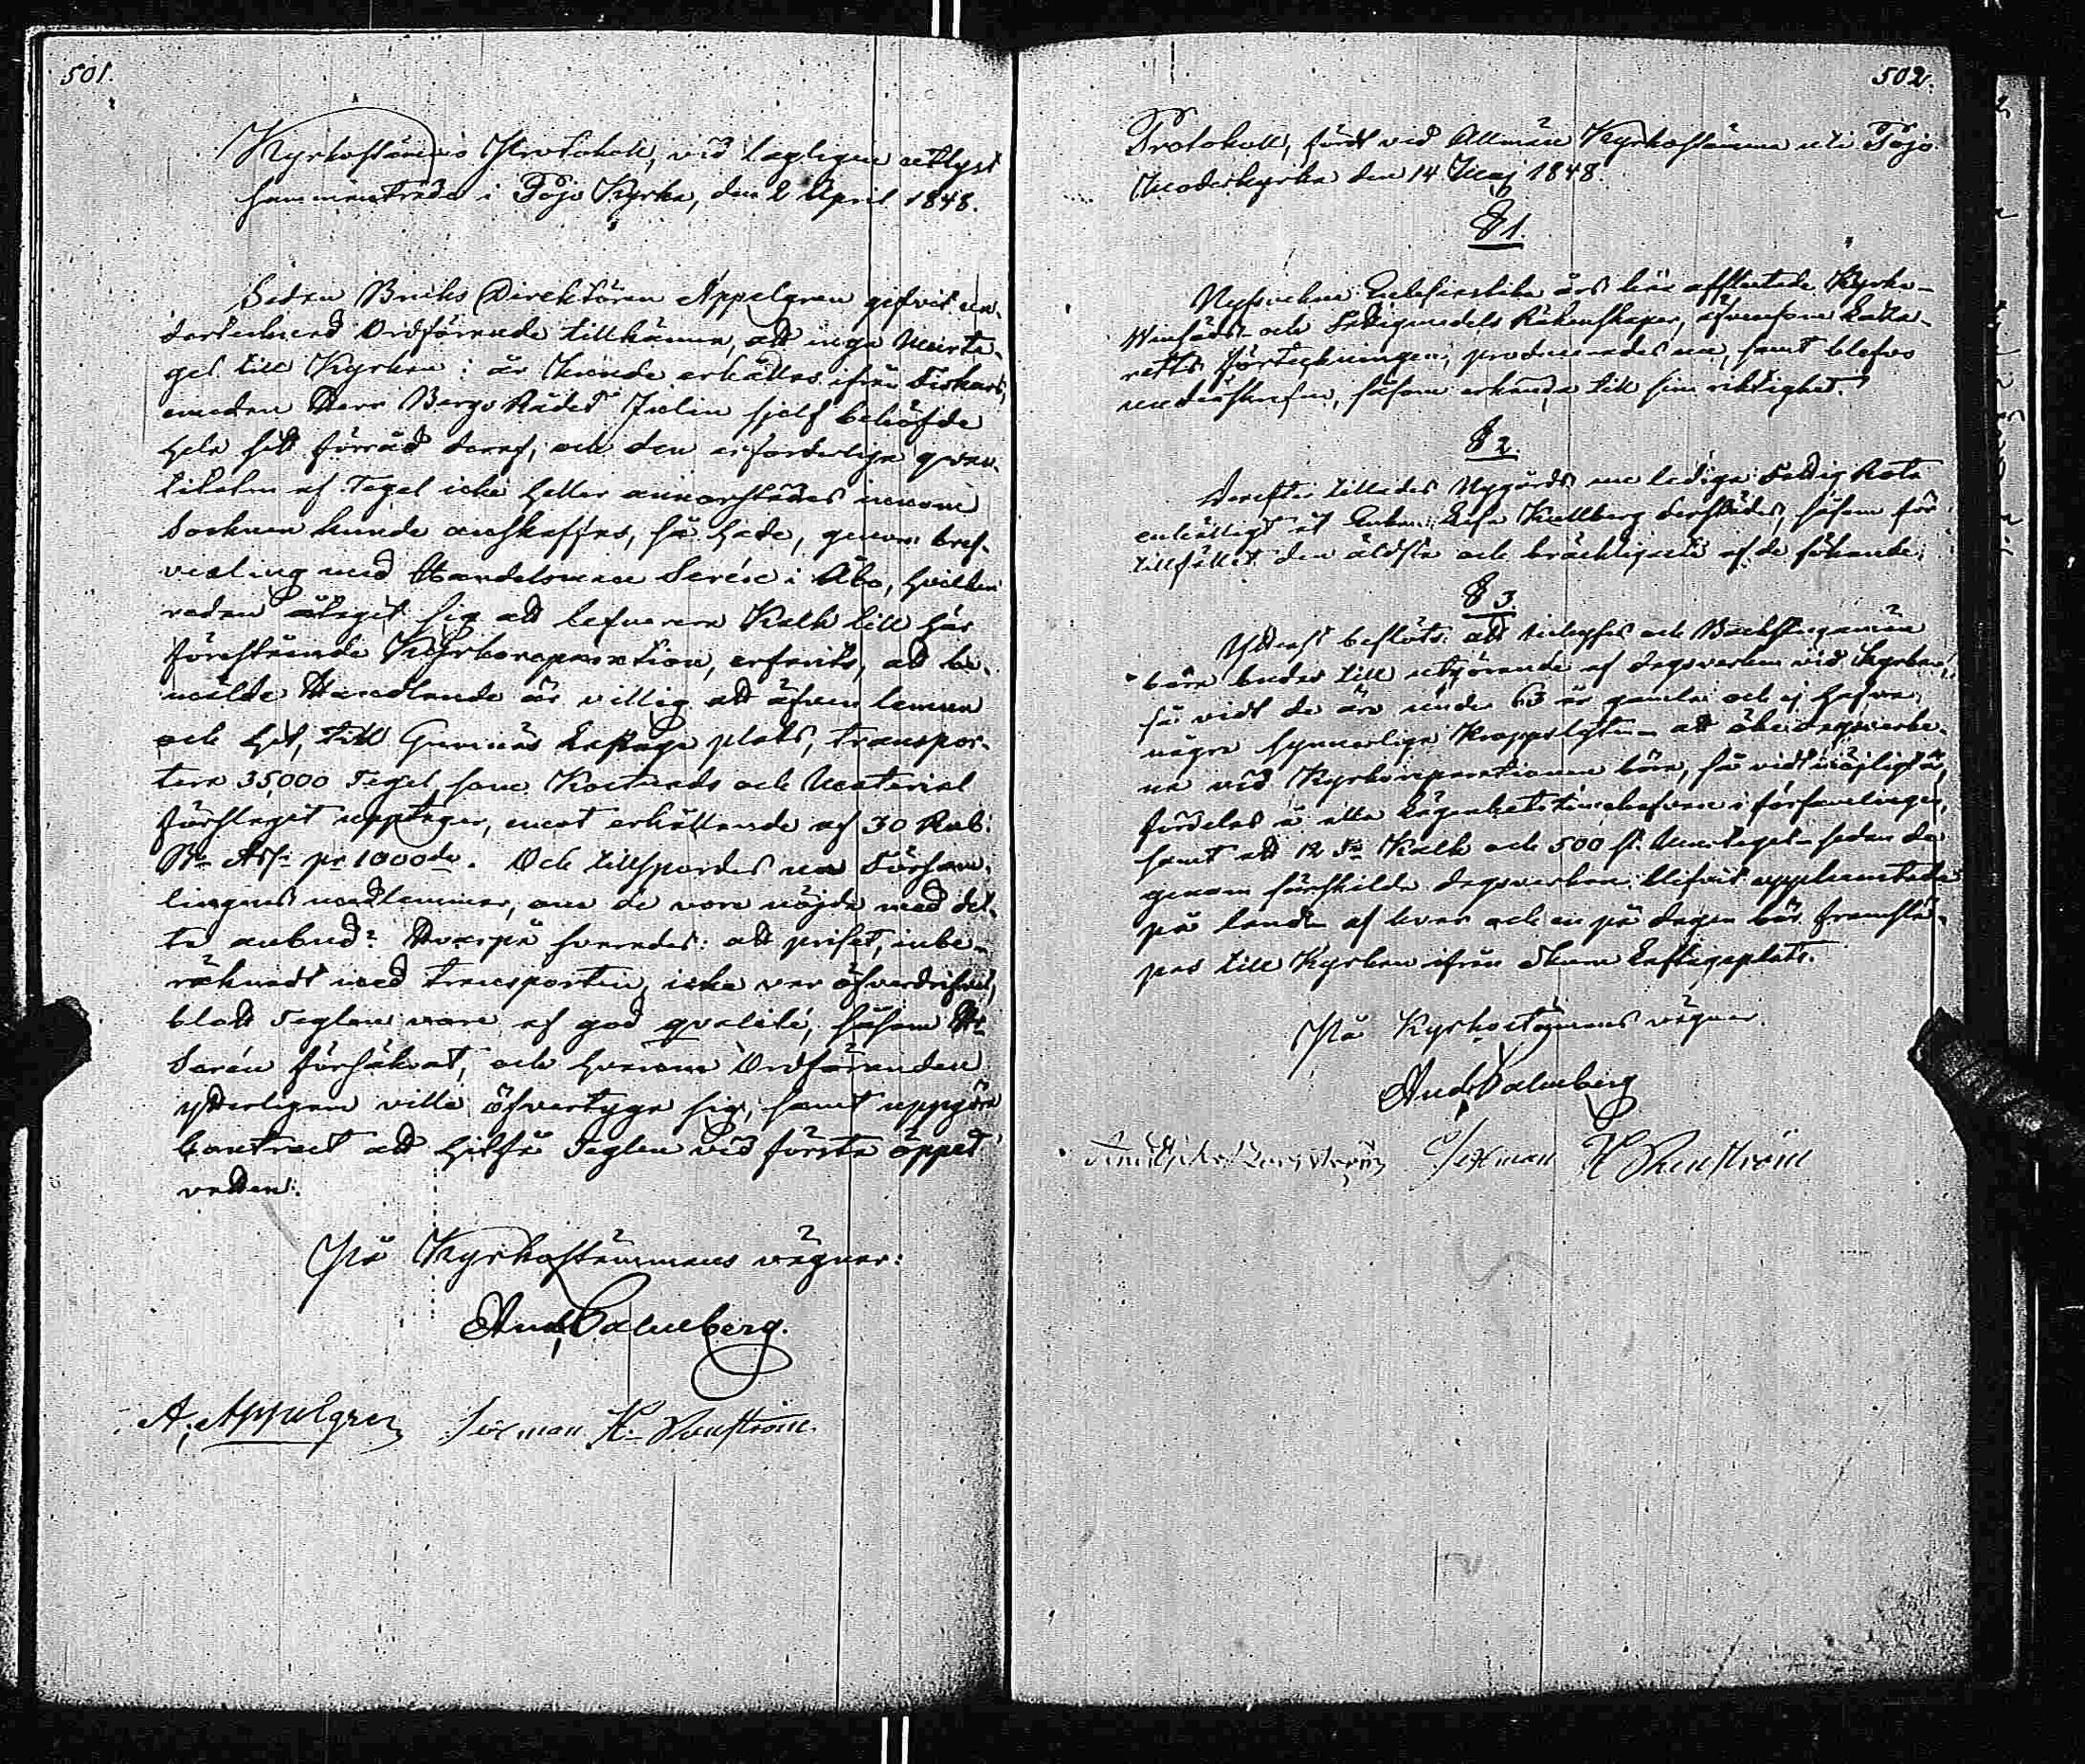 501.
Kyrkostämmo Protokoll, vid lagligen utlyst
sammanträde i Pojo Kyrka, den 2 April 1848.
Sedan Bruks Direktören Appelgren gifvit un-
dertecknad Ordförande tillkänna, att inga Murte-
gel till Kyrkan i år kunde erhållas ifrån Fiskars,
emedan Herr Bergs Rådet Julin sjelf behöfde
hela sitt förråd deraf, och den erforderliga qvan-
titeten af Tegel icke heller annorstädes inom
Socknen kunde anskaffas, så hade, genom bref-
vexling med Handelsman Serén i Åbo, hvilken
redan åtagit sig att lefverera Kalk till här
förestående Kyrkoreparation, erfarits, att be-
mälde Handlande är villig att äfven lemna
och hit, till Gumnäs Lastage plats, transpor-
tera 35,000 Tegel, som Kostnads och Material
förslaget upptager, emot erhållande af 30 Rub.
Sr Assr pr 1000de. Och tillspordes nu Försam-
lingens medlemmar, om de voro nöjda med det-
ta anbud? Hvarpå svarades: att priset, inbe-
räknadt med transporten, icke var öfverdrifvet,
blott Teglen voro af god qvalité, såsom Hr
Serén försäkrat, och hvarom Ordföranden
ytterligare ville öfvertyga sig, samt uppgöra
contract att hitfå Teglen vid första öppet
vatten.
På Kyrkostämmans vägnar:
And. Palmberg.
A. Appelgren Sexman K. Renström.
502.
Protokoll, fördt vid Allmän Kyrkostämma uti Pojo
Moderkyrka den 14 Maj 1848.
§ 1.
års här afslutade Kyrko-
och Fattigmedels Räkenskaper, äfvensom
Förteckningen, producerades nu, samt blefvo
underskrefne, såsom erkända till sin riktighet.
§ 2.
Derefter tillades Nygårds nu lediga Fattig Rote
enhälligt åt Enkan Lisa Kullberg derstädes, såsom för
tillfället den äldsta och bräckligaste af de sökande.
§ 3.
Ytterst beslöts: att Inhyses och Backstugumän
böra budas till utgörande af dagsverken vid Kyrkan,
så vidt de äro under 63 år gamla och ej hafva
några synnerliga Kroppslyten - att åbodagsverke-
na vid Kyrkoreparationen böra, så vidt möjligt är,
fördelas å alla Lägenhetsinnehafvare i församlingen,
samt att 12 Tr Kalk och 500 st. Murtegel - sedan de
genom särskilda dagsverken blifvit upplemtade
på landet af hvar och en på dagen bör framslä-
pas till Kyrkan ifrån Skuru Lastageplats.
På Kyrkostämmans vägnar.
And. Palmberg
Sexman K Renström